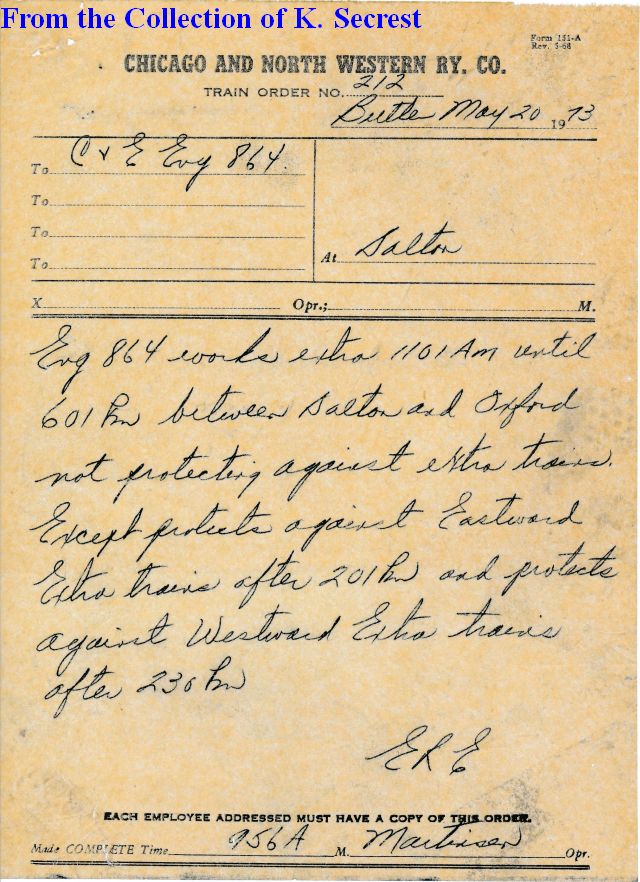 From the Collection of K. Secrest
Form 151-A
Rev. 5-68
CHICAGO AND NORTH WESTERN RY. CO.
TRAIN ORDER NO. 212
Butler May 20 1973
To C & E Eng 864
To
To
To
At Dalton
X Opr.; M.
Eng 864 works extra 1101 Am until
601 Pm between Dalton and Oxford
not protecting against extra trains.
Except protects against Eastward
Extra trains after 201 Pm and protects
against Westward Extra trains
after 230 Pm
ERE
EACH EMPLOYEE ADDRESSED MUST HAVE A COPY OF THIS ORDER.
Made COMPLETE Time 956 A M. Martinsen Opr.